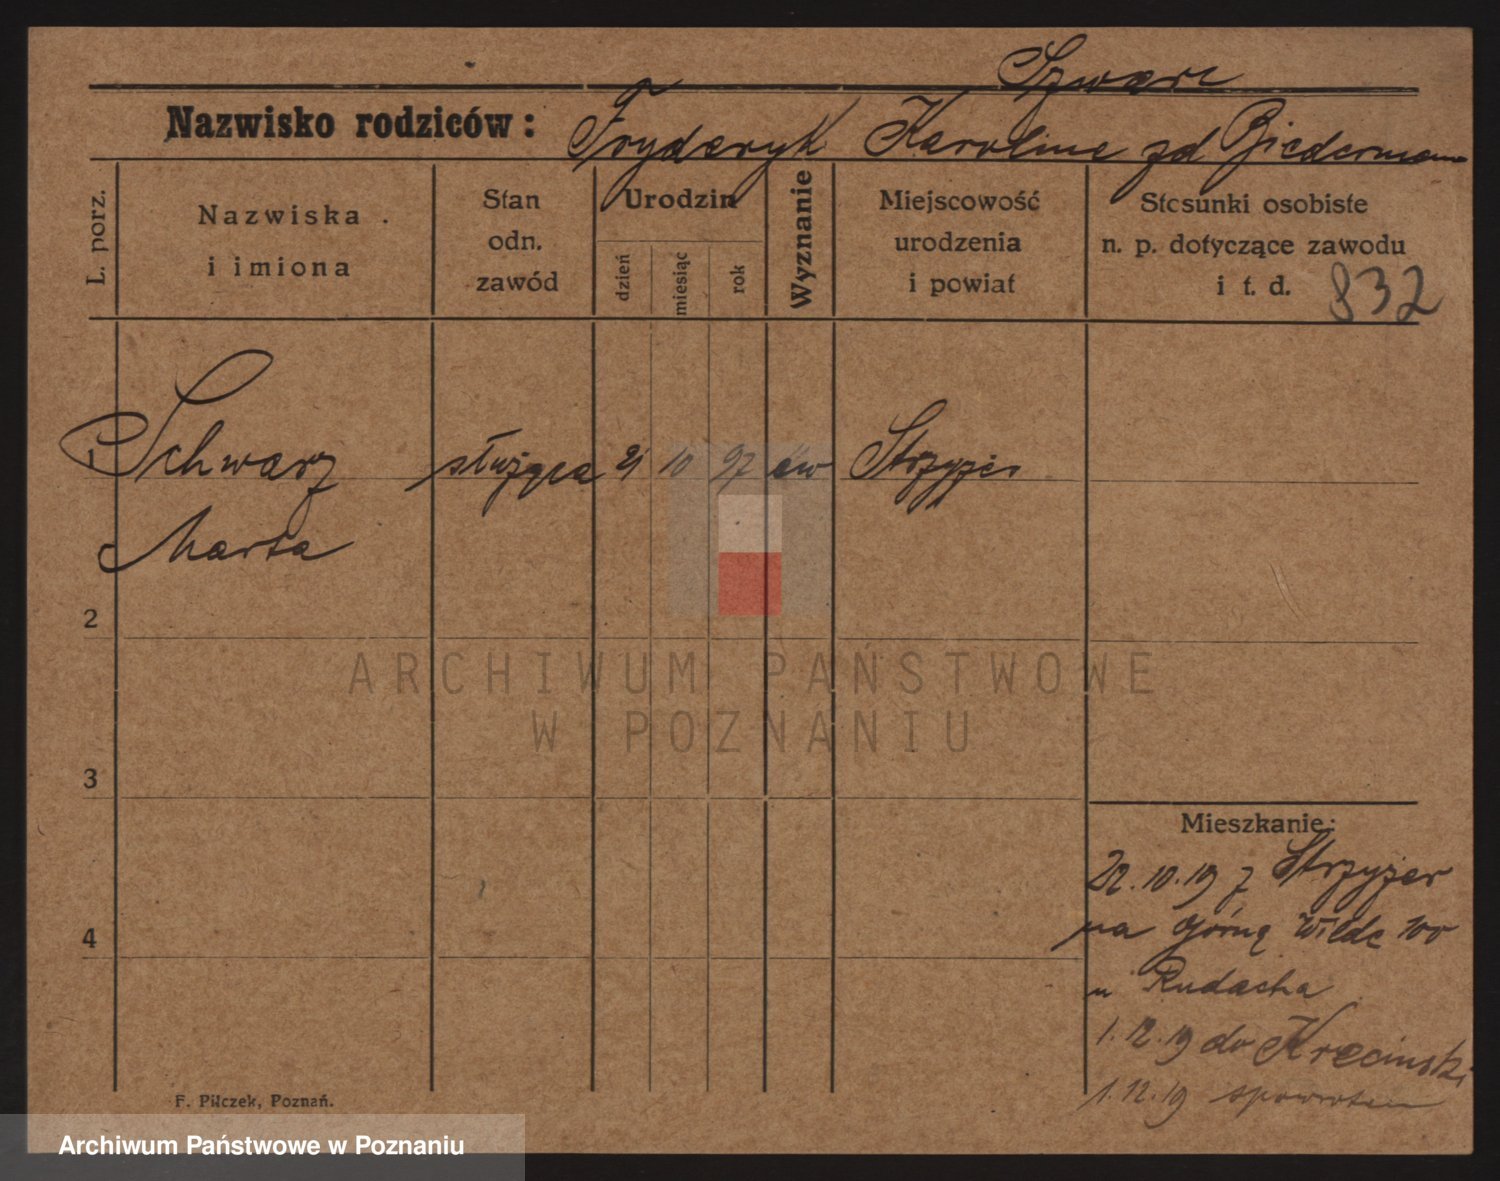 Szwarc
Nazwisko rodziców: Fryderyk Karolina zd Biedermann
L. porz.
Nazwiska i imiona
Stan odn. zawód
Urodzin
dzień
miesiąc
rok
Wyznanie
Miejscowość urodzenia i powiat
Stosunki osobiste n. p. dotyczące zawodu i t. d.
832
1 Schwarz służąca 21 10 97 ew Strzyżew
Marta
2
3
4
Mieszkanie:
22.10.19 z Strzyżew
na górną Wildę 100
u Rudacha
1.12.19 do
1.12.19 spowrotem
F. Pilczek, Poznań.
ARCHIWUM PAŃSTWOWE
W POZNANIU
Archiwum Państwowe w Poznaniu